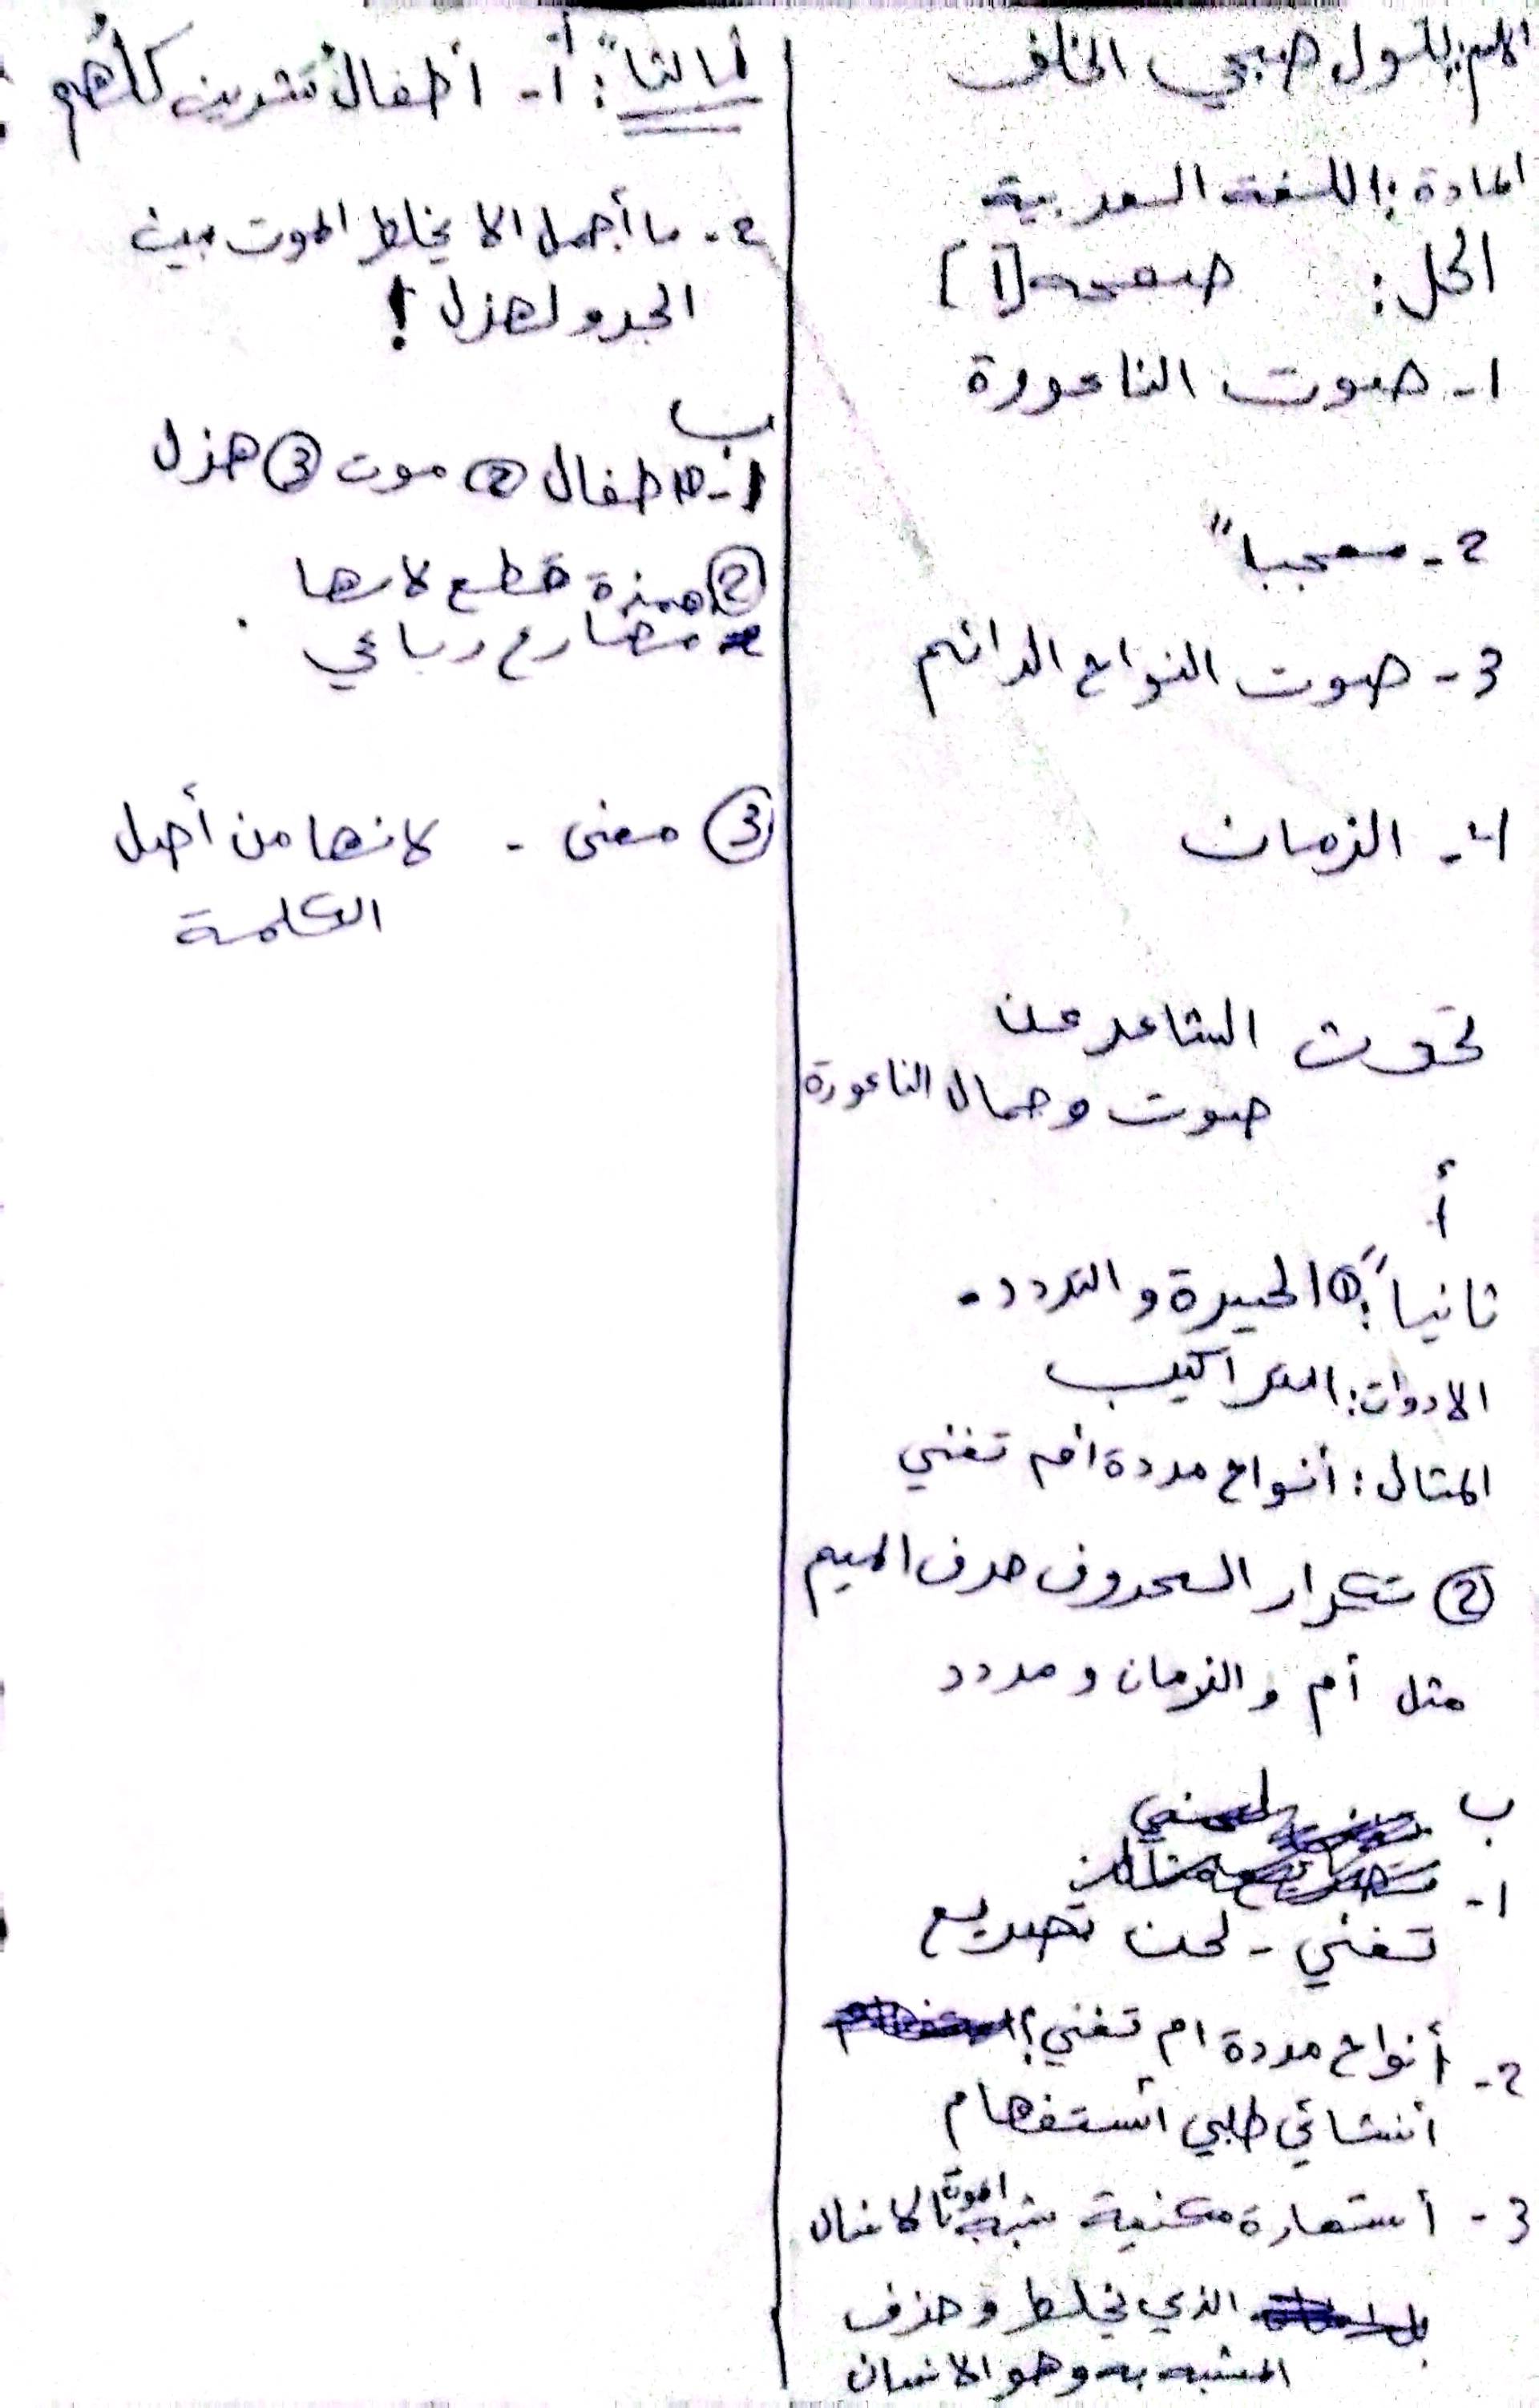 الاسم: بتول صبحي الخلف
المادة: اللغة العربية
الحل: صفحة [1]
1- صوت الناعورة
2- معجباً
3- صوت النواح الدائم
4- الزمان
تحدث الشاعر عن
صوت وجمال الناعورة
أ
ثانياً: ① الحيرة والتردد.
الادوات: التراكيب
المثال: أنواح مددة أم تغني
② تكرار الحروف حرف الميم
مثل أم والزمان ومدد
ب
1-
تغني - لحن تصريع
2- أنواح مددة ام تغني؟
أنشائي طلبي أستفهام
3- أستعارة مكنية شبه الموت بالانسان
الذي يخلط وحذف
المشبه به وهو الانسان
ثالثاً: أ- أطفال تشرين كلهم
2- ما أجمل الا يخلط الموت بين
الجد و لهزل!
ب
1- ① اطفال ② موت ③ هزل
② همزة قطع لانها
مضارع رباعي
③ معنى - لانها من أصل
الكلمة